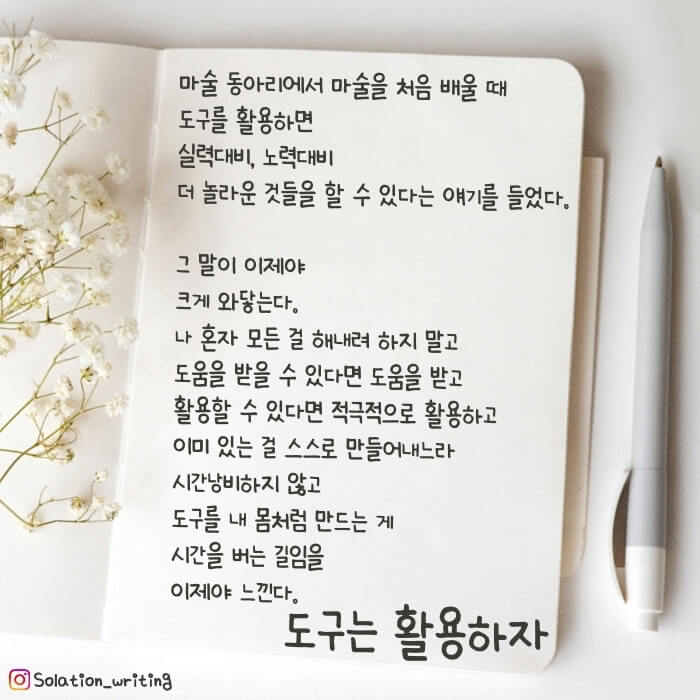 마술 동아리에서 마술을 처음 배울 때
도구를 활용하면
실력대비, 노력대비
더 놀라운 것들을 할 수 있다는 얘기를 들었다.
그 말이 이제야
크게 와닿는다.
나 혼자 모든 걸 해내려 하지 말고
도움을 받을 수 있다면 도움을 받고
활용할 수 있다면 적극적으로 활용하고
이미 있는 걸 스스로 만들어내느라
시간낭비하지 않고
도구를 내 몸처럼 만드는 게
시간을 버는 길임을
이제야 느낀다.
도구는 활용하자
Solation_writing